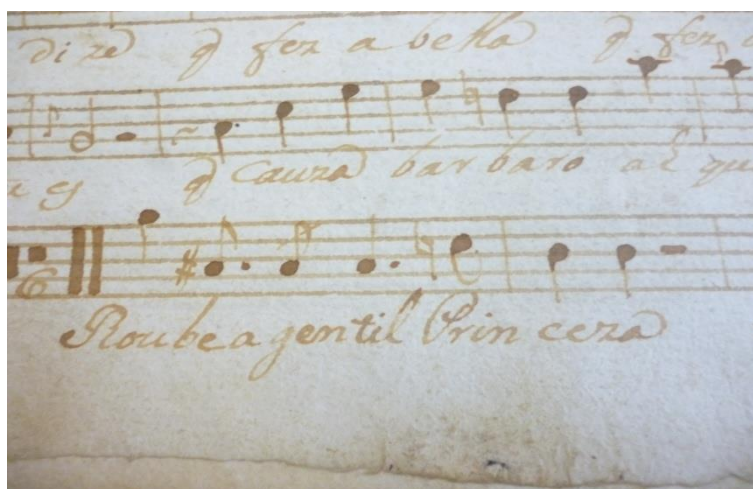 dize q fez a bella q fez
q cauza barbaro
6
Roube a gentil Princeza